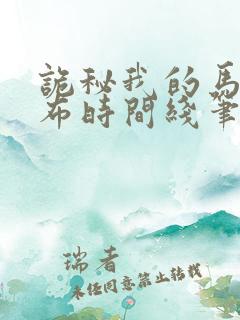 詭秘我的馬
布時間綫筆
瑞者
未經同意禁止轉載